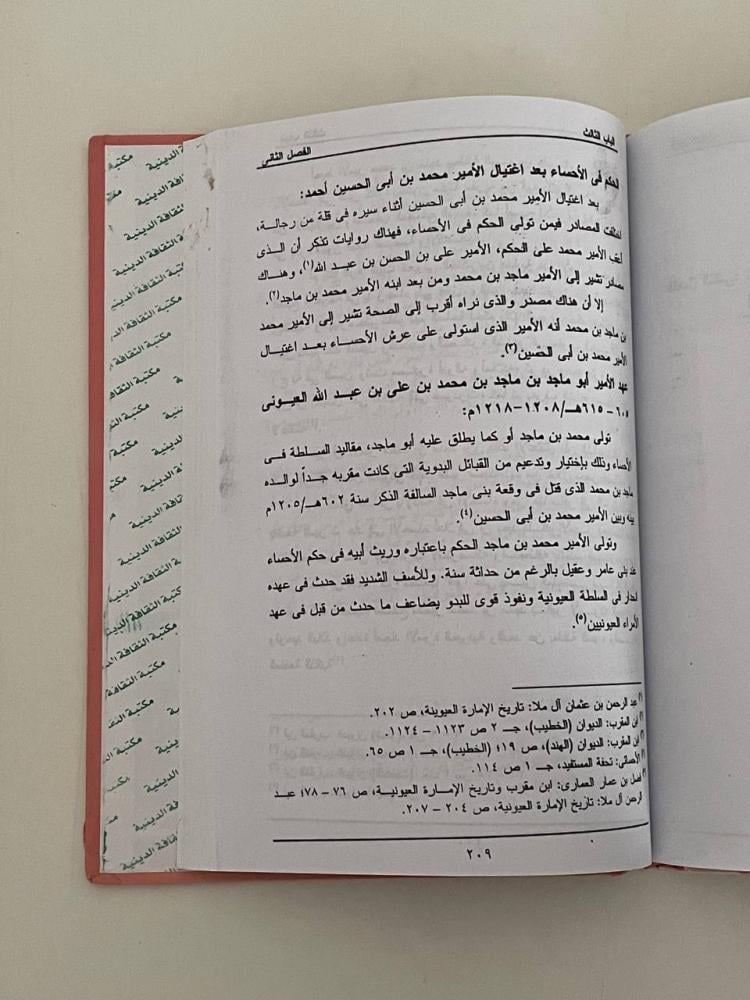 الباب الثالث
الفصل الثانى
الحكم فى الأحساء بعد اغتيال الأمير محمد بن أبى الحسين أحمد:
بعد اغتيال الأمير محمد بن أبى الحسين أثناء سيره فى قلة من رجالة،
اختلفت المصادر فيمن تولى الحكم فى الأحساء، فهناك روايات تذكر أن الذى
أعقب الأمير محمد على الحكم، الأمير على بن الحسن بن عبد الله(١)، وهناك
مصادر تشير إلى الأمير ماجد بن محمد ومن بعد ابنه الأمير محمد بن ماجد(٢).
إلا أن هناك مصدر والذى نراه أقرب إلى الصحة تشير إلى الأمير محمد
بن ماجد بن محمد أنه الأمير الذى استولى على عرش الأحساء بعد اغتيال
الأمير محمد بن أبى الحسين(٣).
عهد الأمير أبو ماجد بن ماجد بن محمد بن على بن عبد الله العيونى
٦٠٥ - ٦١٥هـ/١٢٠٨-١٢١٨م:
تولى محمد بن ماجد أو كما يطلق عليه أبو ماجد، مقاليد السلطة فى
الأحساء وذلك بإختيار وتدعيم من القبائل البدوية التى كانت مقربه جداً لوالده
ماجد بن محمد الذى قتل فى وقعة بنى ماجد السالفة الذكر سنة ٦٠٢هـ/١٢٠٥م
بينه وبين الأمير محمد بن أبى الحسين(٤).
وتولى الأمير محمد بن ماجد الحكم باعتباره وريث أبيه فى حكم الأحساء
عند بنى عامر وعقيل بالرغم من حداثة سنة. وللأسف الشديد فقد حدث فى عهده
انحدار فى السلطة العيونية ونفوذ قوى للبدو يضاعف ما حدث من قبل فى عهد
الأمراء العيونيين(٥).
(١) عبد الرحمن بن عثمان آل ملا: تاريخ الإمارة العيوينة، ص ٢٠٢.
(٢) ابن المقرب: الديوان (الخطيب)، جـ ٢ ص ١١٢٣ - ١١٢٤.
(٣) ابن المقرب: الديوان (الهند)، ص ٤١٩ (الخطيب)، جـ ١ ص ٦٥.
(٤) الأحسائى: تحفة المستفيد، جـ ١ ص ١١٤.
(٥) فضل بن عمار العمارى: ابن مقرب وتاريخ الإمارة العيونية، ص ٧٦ - ٧٨؛ عبد
الرحمن آل ملا: تاريخ الإمارة العيونية، ص ٢٠٤ - ٢٠٧.
٢٠٩
مكتبة الثقافة الدينية